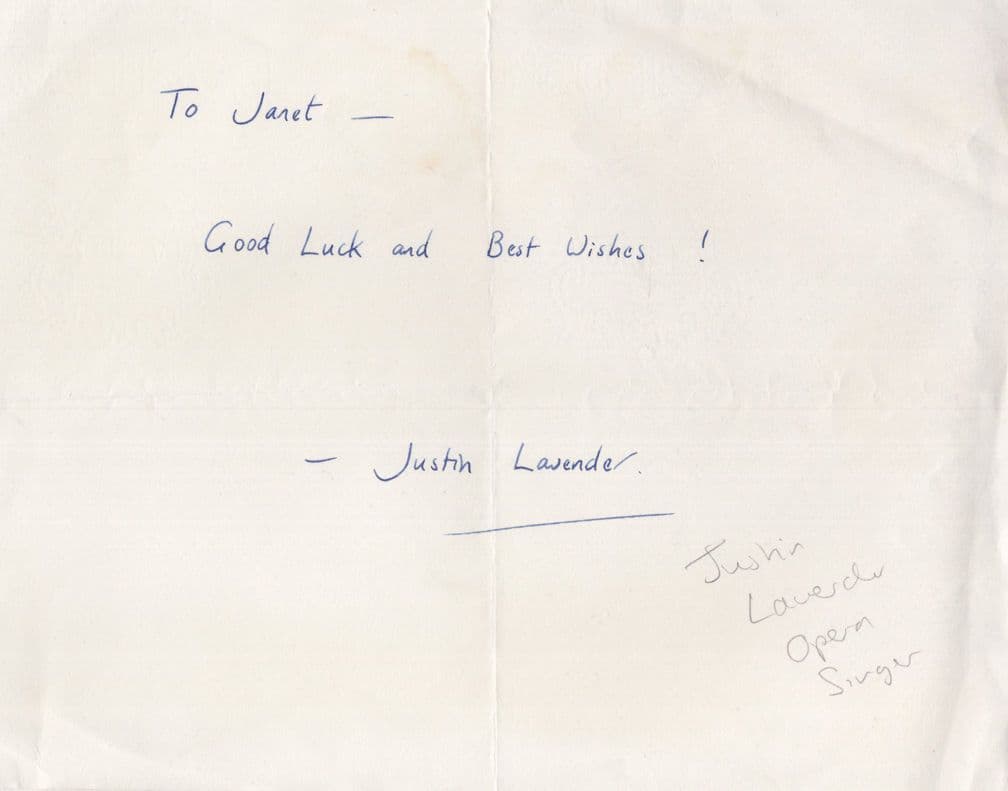 To Janet —
Good Luck and Best Wishes !
— Justin Lavender.
Justin
Lavender
Opera
Singer